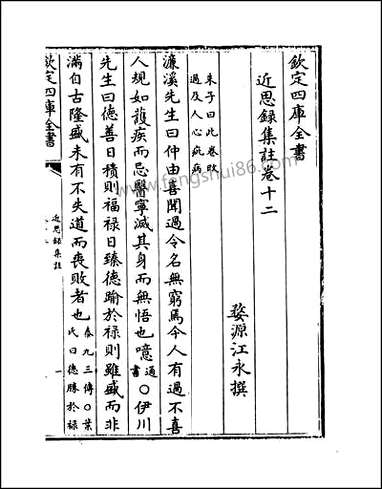 欽定四庫全書
近思錄集註卷十二
婺源江永撰
朱子曰此卷改
過及人心疵病
濂溪先生曰仲由喜聞過令名無窮焉今人有過不喜
人規如護疾而忌醫寧滅其身而無悟也噫通書○伊川
先生曰德善日積則福祿日臻德踰於祿則雖盛而非
滿自古隆盛未有不失道而喪敗者也泰九三傳○葉氏曰德勝於祿
欽定四庫全書
近思錄集註
一
www.fengshui86.com